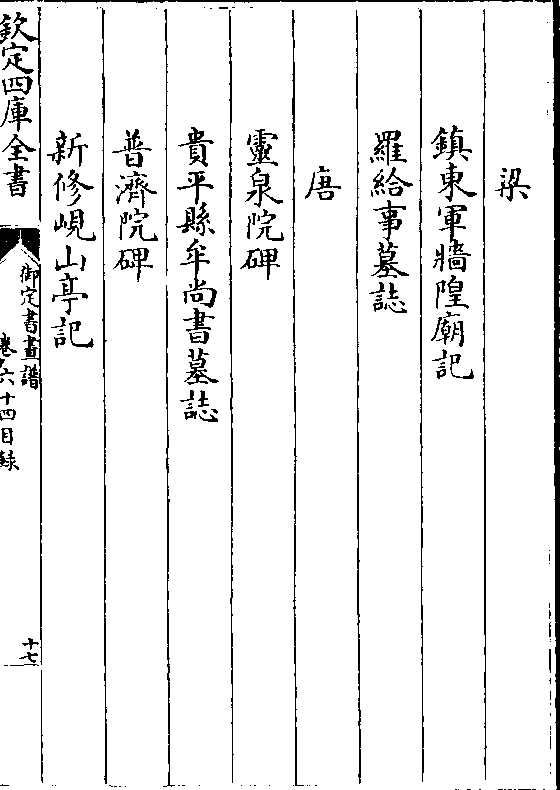 梁
鎮東軍牆隍廟記
羅給事墓誌
唐
靈泉院碑
貴平縣牟尚書墓誌
普濟院碑
新修峴山亭記
欽定四庫全書
御定書畫譜
卷六十四目録
十七